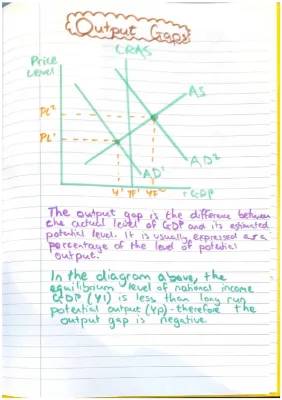 Output Gaps
LRAS
Price
Level
AS
PL²
PL¹
AD¹
AD²
Y¹ YF¹ YF²
rGDP
The output gap is the difference between
the actual level of GDP and its estimated
potential level. It is usually expressed as a
percentage of the level of potential
output.
In the diagram above, the
equilibrium level of national income
GDP (Y1) is less than long run
potential output (Yp) - therefore the
output gap is negative